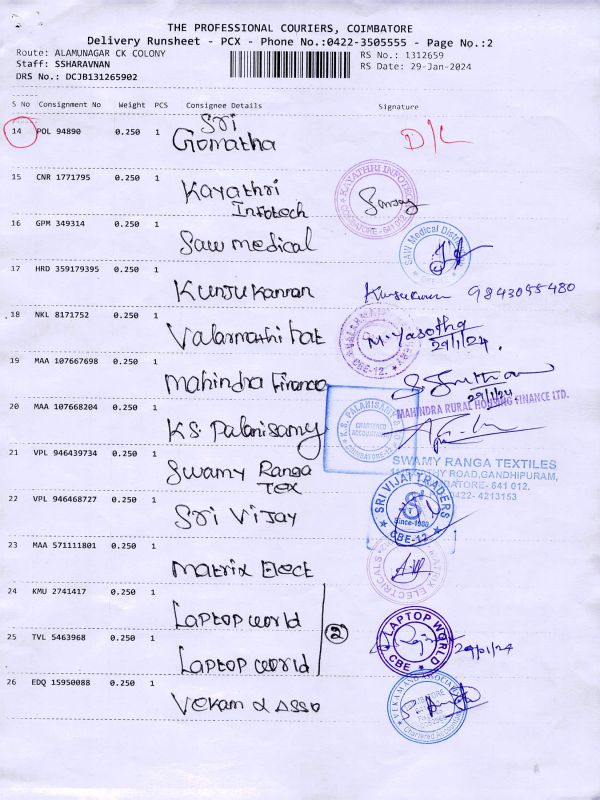 THE PROFESSIONAL COURIERS, COIMBATORE
Delivery Runsheet - PCX - Phone No.:0422-3505555 - Page No.:2
Route: ALAMUNAGAR CK COLONY
RS No.: 1312659
Staff: SSHARAVNAN
RS Date: 29-Jan-2024
DRS No.: DCJB131265902
S No Consignment No Weight PCS Consignee Details Signature
14 POL 94890 0.250 1 Sri Gomatha D/L
15 CNR 1771795 0.250 1 Kayathri Infotech
KAYATHRI INFOTECH
16 GPM 349314 0.250 1 Saw medical
SAW Medical
17 HRD 359179395 0.250 1 Kunju kannan 9843055480
18 NKL 8171752 0.250 1 Valarmathi
CBE-12.
M. Yasotha
29/1/24.
19 MAA 107667698 0.250 1 Mahindra Finance
29/1/24.
MAHINDRA RURAL HOUSING FINANCE LTD.
20 MAA 107668204 0.250 1 K.S. Palanisamy
K.S. PALANISAMY &
CHARTERED
ACCOUNTANTS
21 VPL 946439734 0.250 1 Swamy Ranga Tex
SWAMY RANGA TEXTILES
ROAD, GANDHIPURAM,
641 012.
0422- 4213153
22 VPL 946468727 0.250 1 Sri Vijay
SRI VIJAI TRADERS
Since-1980
CBE-12
23 MAA 571111801 0.250 1 Matrix Elect
MATRIX ELECTRICALS
24 KMU 2741417 0.250 1 Laptop world
2
25 TVL 5463968 0.250 1 Laptop world
LAPTOP WORLD
CBE
29/01/24
26 EDQ 15950088 0.250 1 Vekam & Asso
Chartered Accountants